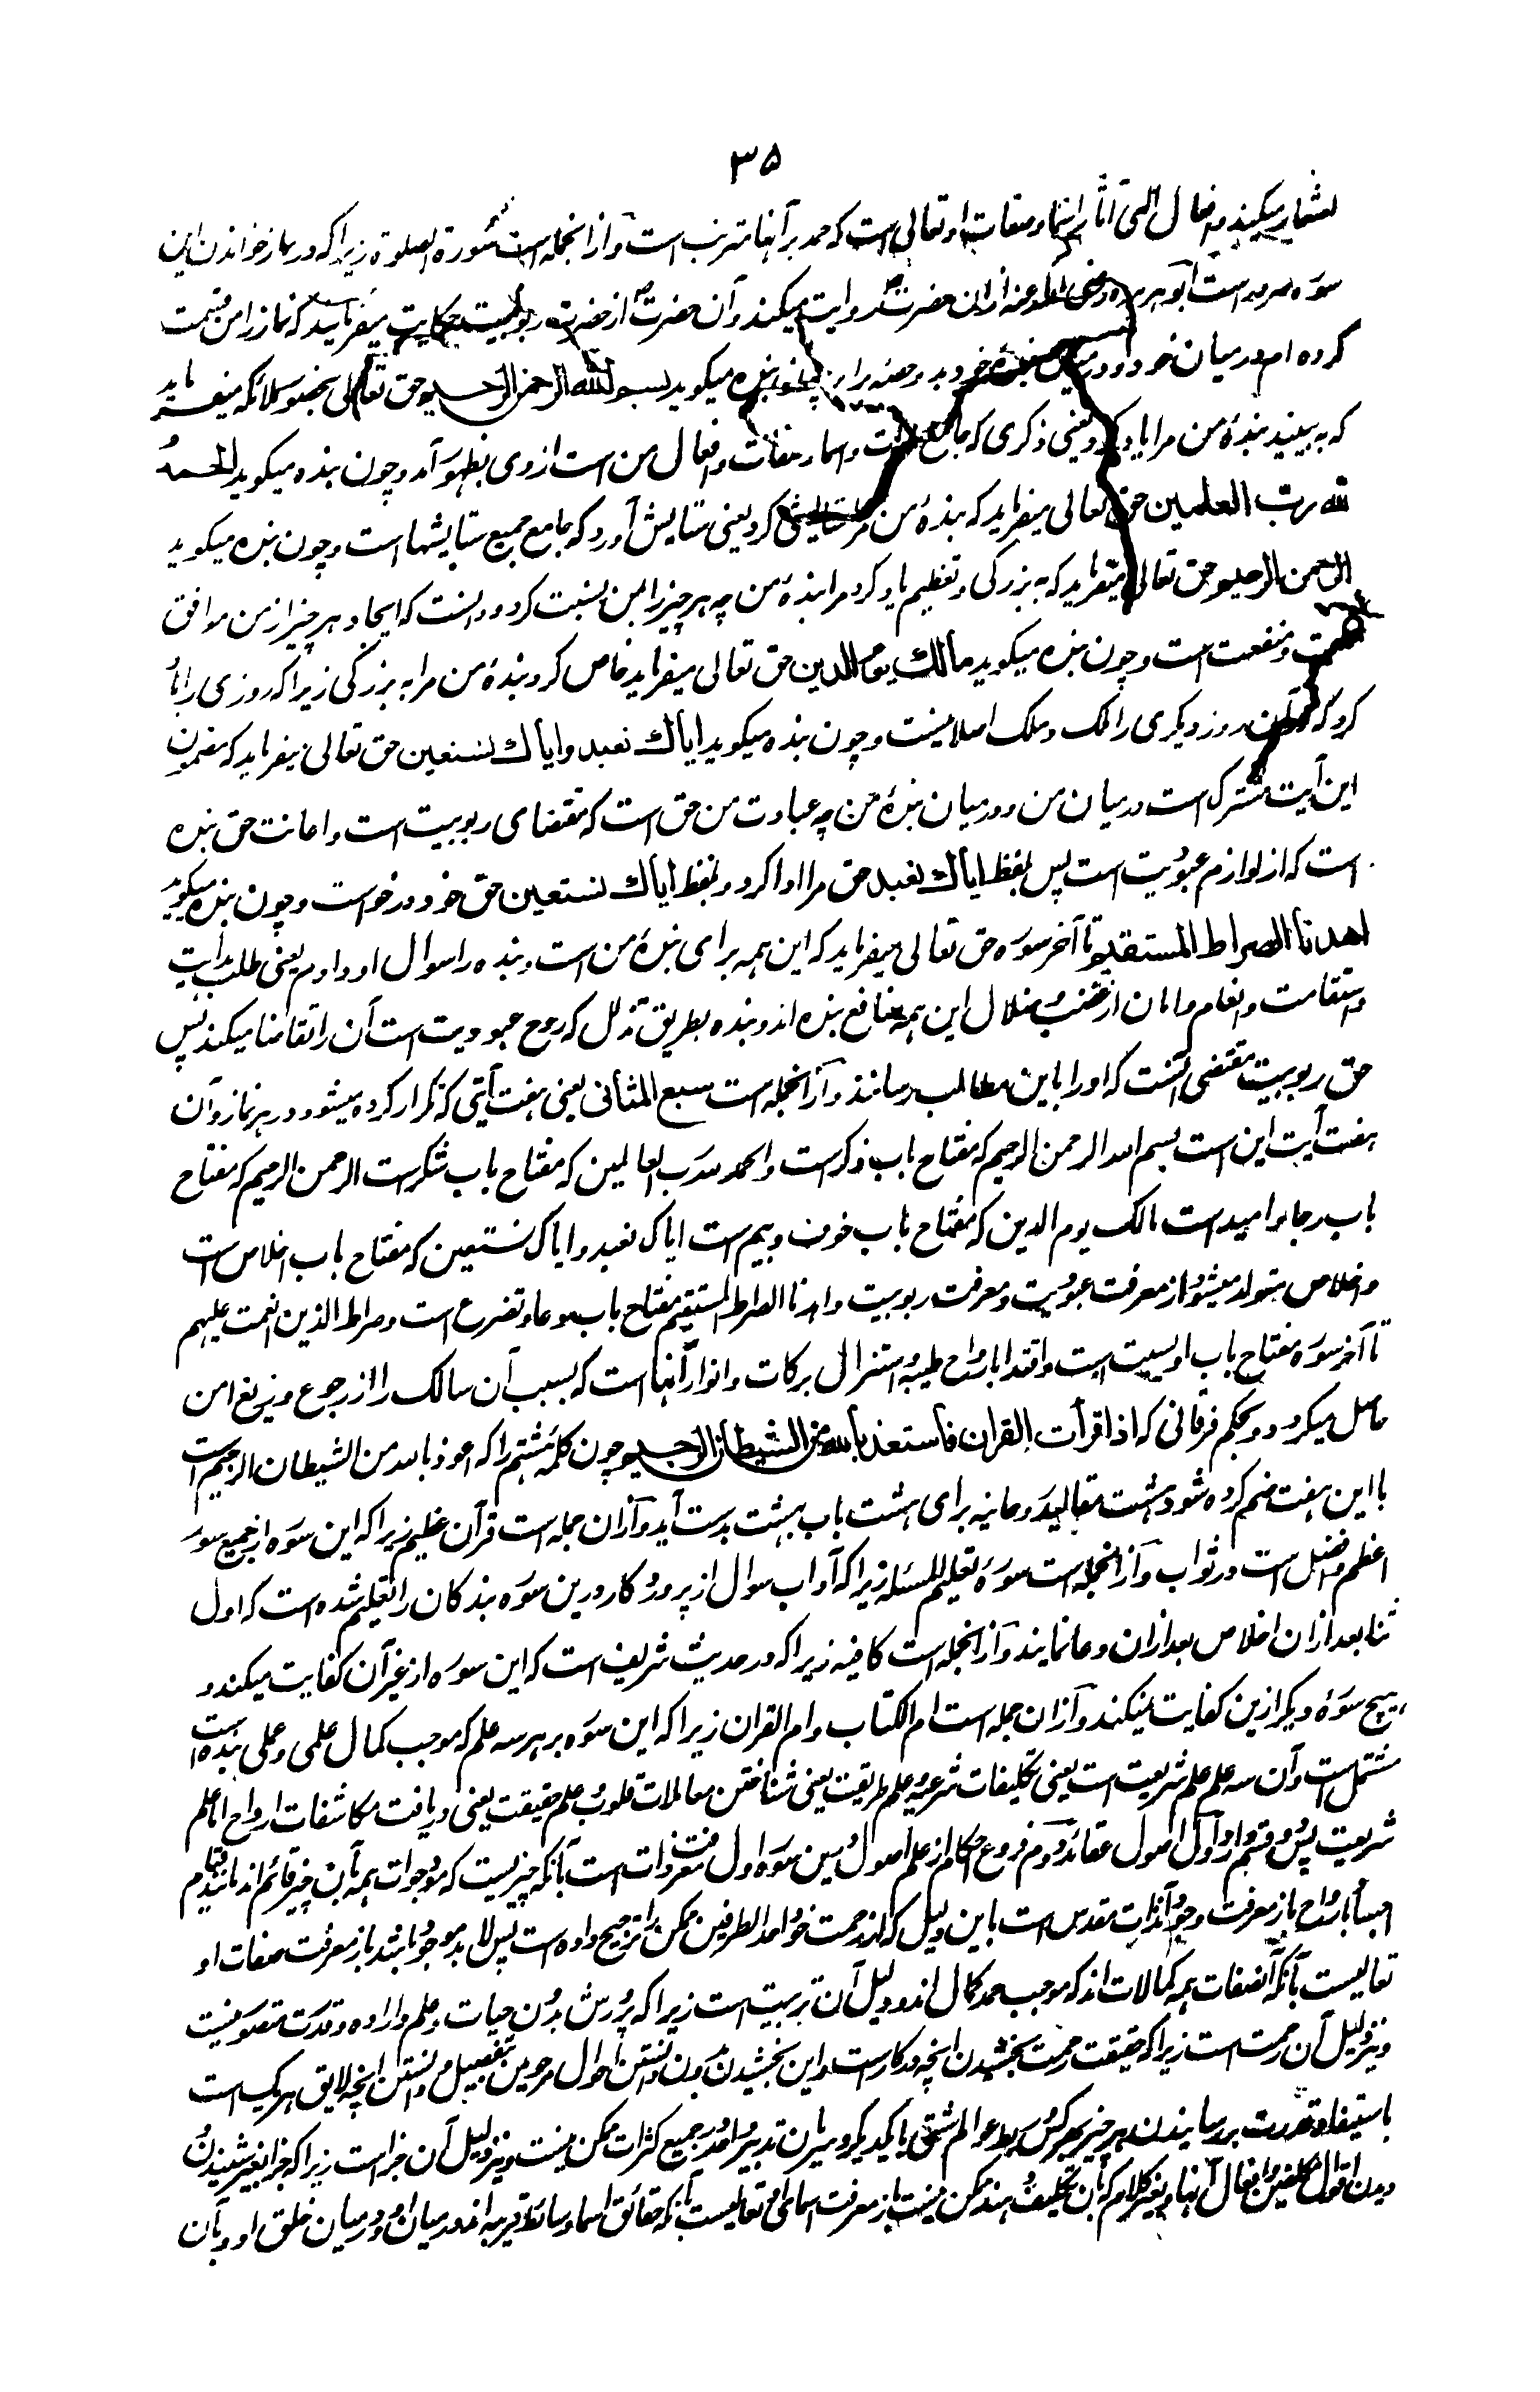 ۳۵
بشمار میکنید و افعال الهی آثار اسما و صفات او تعالی است که حمد بر آنها مترتب است و از انجمله است سورة الصلوة زیرا که در نماز خواندن این
سوره ضرور است ابو هریره رضی الله عنه از ان حضرت روایت میکند و آن حضرت از حضرت ربوبیت حکایت میفرماید که نماز را من قسمت
کرده ام درمیان خود و درمیان بنده خود بدو حصه برابر چون بنده میگوید بسم الله الرحمن الرحیم حق تعالی بحضور ملائکه میفرماید
که به بینید بندهٔ من مرا یاد کرد یعنی ذکری که جامع ذات و اسما و صفات و افعال من است از وی بظهور آمد و چون بنده میگوید الحمد
لله رب العلمین حق تعالی میفرماید که بندهٔ من مرا ستایش کرد یعنی ستایش آورد که جامع جمیع ستایشها است و چون بنده میگوید
الرحمن الرحیم حق تعالی میفرماید که به بزرگی و تعظیم یاد کرد مرا بندهٔ من چه هر چیز را بمن نسبت کرد و دانست که ایجاد هر چیز از من موافق
حکمت و منفعت است و چون بنده میگوید مالك یوم الدین حق تعالی میفرماید خاص کرد بندهٔ من مرا به بزرگی زیرا که روزی را یاد
کرد که در آن روز دیگری را ملک و ملک اصلا نیست و چون بنده میگوید ایاك نعبد وایاك نستعین حق تعالی میفرماید که مضمون
این آیت مشترک است درمیان من و درمیان بندهٔ من چه عبادت من حق است که مقتضای ربوبیت است و اعانت حق بنده
است که از لوازم عبودیت است پس بلفظ ایاك نعبد حق مرا ادا کرد و بلفظ ایاك نستعین حق خود درخواست و چون بنده میگوید
اهدنا الصراط المستقیم تا آخر سوره حق تعالی میفرماید که این همه برای بندهٔ من است و بنده را سوال او دادم یعنی طلب هدایت
و استقامت و انعام و امان از غضب و ضلال این همه منافع بنده اند و بنده بطریق تذلل که روح عبودیت است آن را تقاضا میکند پس
حق ربوبیت مقتضی آنست که او را باین مطالب رسانند و از انجمله است سبع المثانی یعنی هفت آیتی که تکرار کرده میشود در هر نماز و آن
هفت آیت این است بسم الله الرحمن الرحیم که مفتاح باب ذکرست و الحمد لله رب العالمین که مفتاح باب شکرست الرحمن الرحیم که مفتاح
باب رجا و امیدست مالک یوم الدین که مفتاح باب خوف و بیم ست ایاک نعبد وایاک نستعین که مفتاح باب اخلاص است
و اخلاص متولد میشود از معرفت عبودیت و معرفت ربوبیت و اهدنا الصراط المستقیم مفتاح باب دعا و تضرع است و صراط الذین انعمت علیهم
تا آخر سوره مفتاح باب اویسیت است و اقتدا بارواح طیبه و استنزال برکات و انوار آنها است که بسبب آن سالک را از رجوع و زیغ امن
حاصل میگردد و بحکم فرقانی که اذا قرأت القران فاستعذ بالله من الشیطان الرجیم چون کلمهٔ هشتم را که اعوذ بالله من الشیطان الرجیم است
با این هفت ضم کرده شود هشت مقالید روحانیه برای هشت باب بهشت بدست آید و از ان جمله است قرآن عظیم زیرا که این سوره از جمیع سور
اعظم و افضل است در ثواب و از انجمله است سورهٔ تعلیم المسئله زیرا که آداب سوال از پروردگار درین سوره بندگان را تعلیم شده است که اول
ثنا بعد از ان اخلاص بعد از ان دعا نمایند و از انجمله است کافیه زیرا که در حدیث شریف است که این سوره از غیر آن کفایت میکند و
هیچ سورهٔ دیگر ازین کفایت نمیکند و از ان جمله است ام الکتاب و ام القران زیرا که این سوره بر هر سه علم که موجب کمال علمی و عملی بنده است
مشتمل است و آن سه علم علم شریعت است یعنی تکلیفات شرعیه و علم طریقت یعنی شناختن معاملات قلوب و علم حقیقت یعنی دریافت مکاشفات ارواح اما علم
شریعت پس دو قسم دارد اول اصول عقائد دوم فروع احکام از علم اصول درین سوره اول معرفت ذات است بآنکه چیزیست که موجودات همه بآن چیز قائم اند مانند قیام
اجساد بارواح باز معرفت وجود آنذات مقدس است باین دلیل که از رحمت خود احد الطرفین ممکن را ترجیح داده است پس لا بد موجود باشد باز معرفت صفات او
تعالیست بآنکه آنصفات همه کمالات اند که موجب حمد کمال اند و دلیل آن تربیت است زیرا که پرورش بدون حیات و علم و اراده و قدرت متصور نیست
و نیز دلیل آن رحمت است زیرا که حقیقت رحمت بخشیدن انچه درکارست و این بخشیدن بدون دانستن احوال مرحومین بتفصیل و دانستن انچه لایق هر یک است
باستیفا و قدرت بر رسانیدن هر چیز بهر کس و ربط عوالم شتی با یکدیگر و سریان تدبیر واحد در جمیع کثرات ممکن نیست و نیز دلیل آن جزاست زیرا که جزا بغیر شنیدن و
دیدن اقوال مکلفین و افعال آنها و بغیر کلام که بآن تکلیف دهند ممکن نیست باز معرفت اسمای او تعالیست بآنکه حقائق اسما وسائط قریبه اند درمیان او و درمیان خلق او و بآن